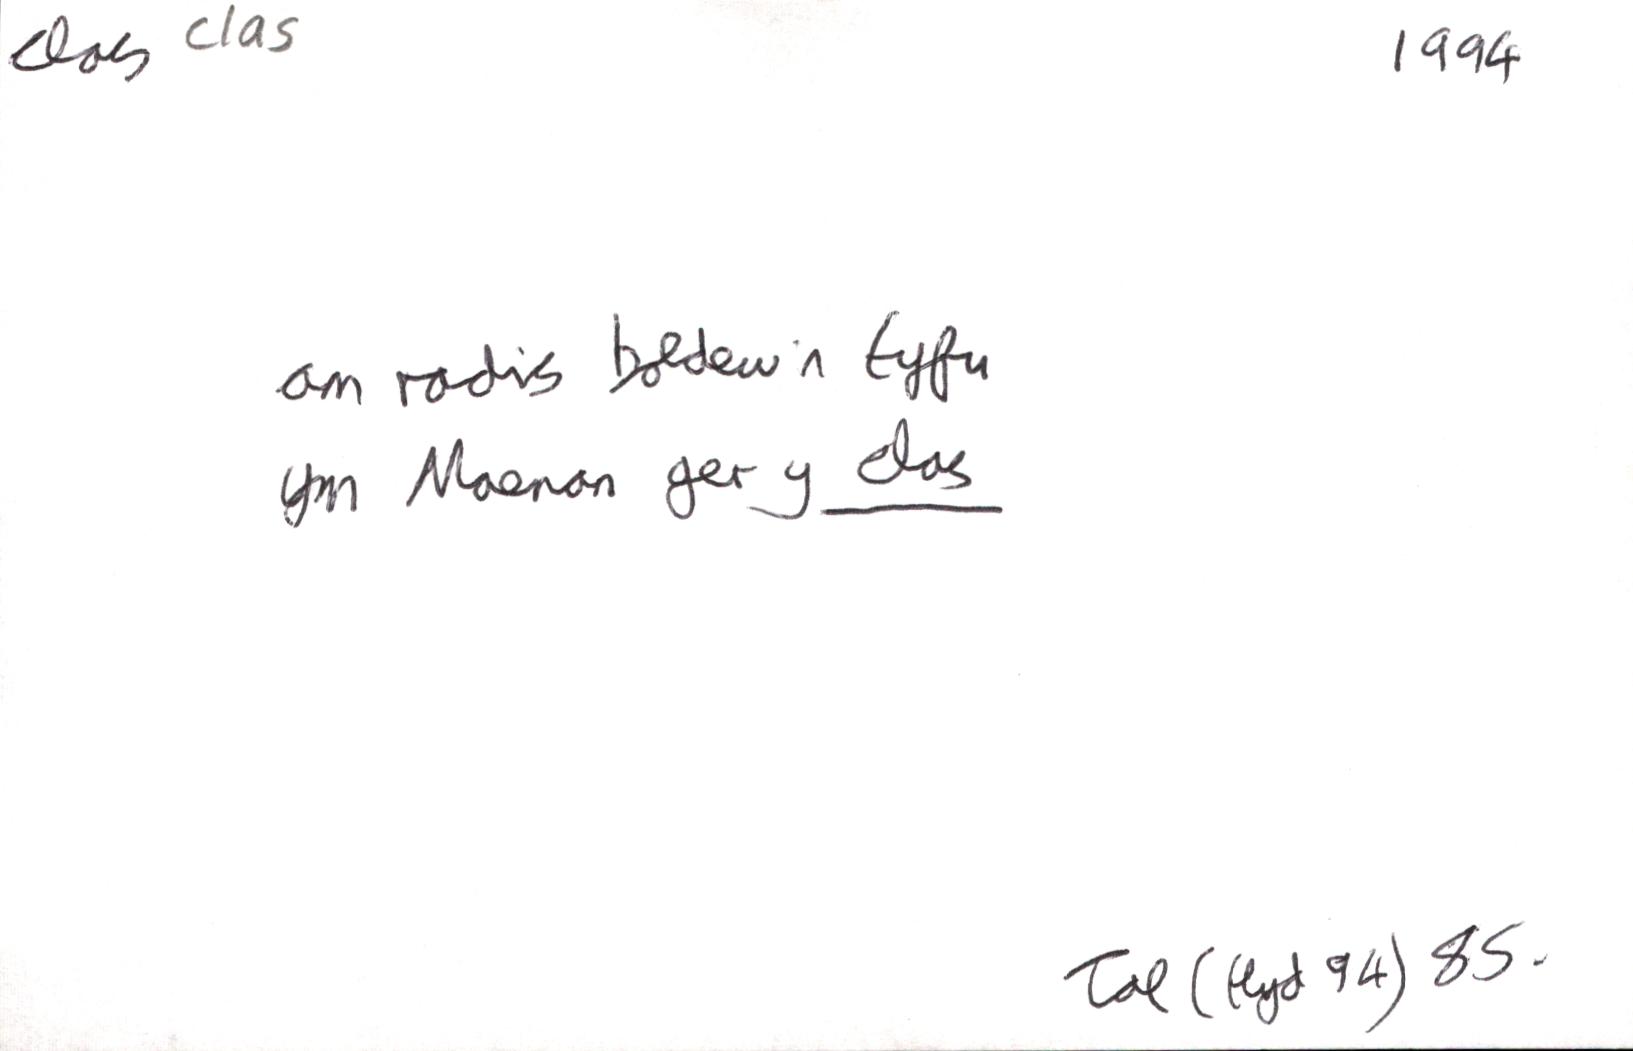 clas clas 1994
am radis boldew'n tyfu
ym Maenan ger y clas
Tal (Hyd 94) 85.